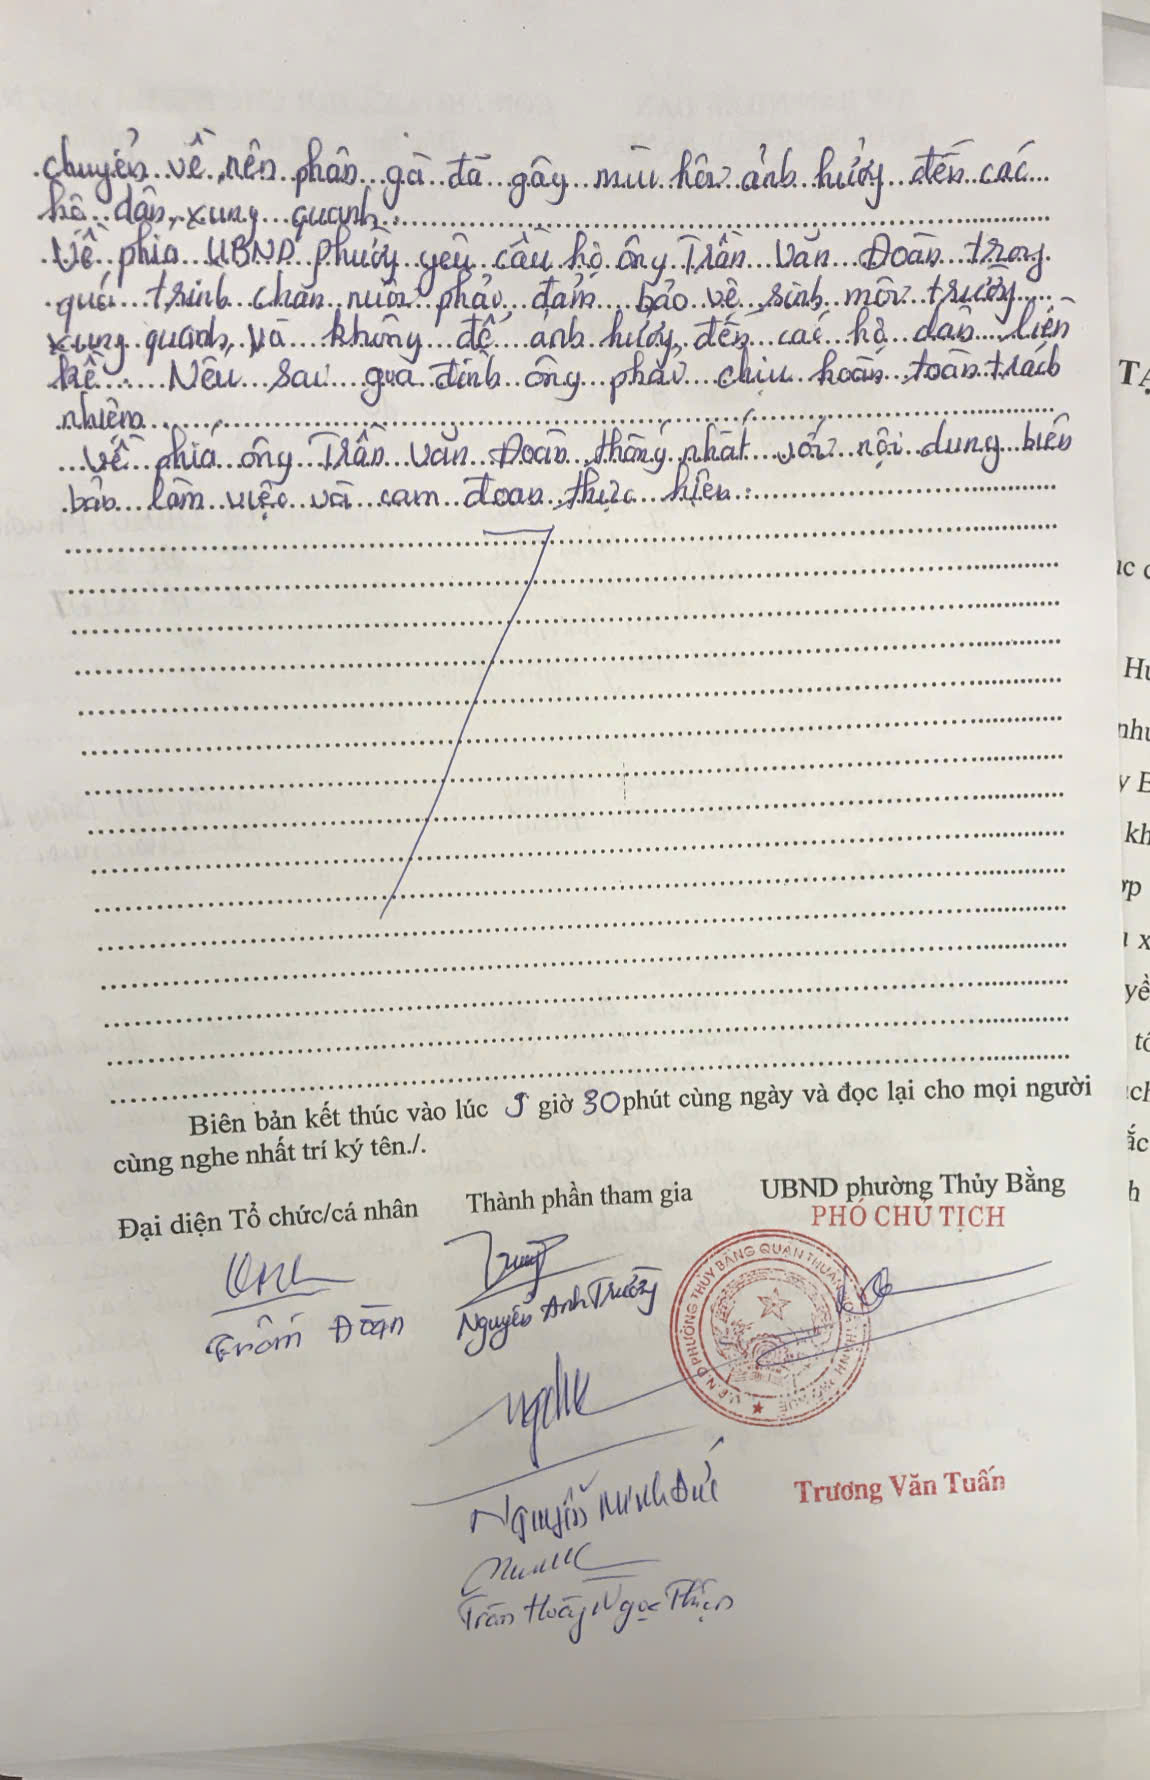 chuyển về, nên phân gà đã gây mùi hôi ảnh hưởng đến các
hộ dân xung quanh.
Về phía UBND phường yêu cầu hộ ông Trần Văn Đoàn trong
quá trình chăn nuôi phải đảm bảo vệ sinh môi trường
xung quanh và không để ảnh hưởng đến các hộ dân liền
kề. Nếu sai gia đình ông phải chịu hoàn toàn trách
nhiệm.
Về phía ông Trần Văn Đoàn thống nhất với nội dung biên
bản làm việc và cam đoan thực hiện.
Biên bản kết thúc vào lúc giờ 30 phút cùng ngày và đọc lại cho mọi người
cùng nghe nhất trí ký tên./.
Đại diện Tổ chức/cá nhân
Đoàn
Thành phần tham gia
Nguyễn Anh Trường
Nguyễn Minh Đức
Trần Hoàng Ngọc Thiện
UBND phường Thủy Bằng
PHÓ CHỦ TỊCH
U.B.N.D PHƯỜNG THỦY BẰNG QUẬN THUẬN HÓA THÀNH PHỐ HUẾ
Trương Văn Tuấn